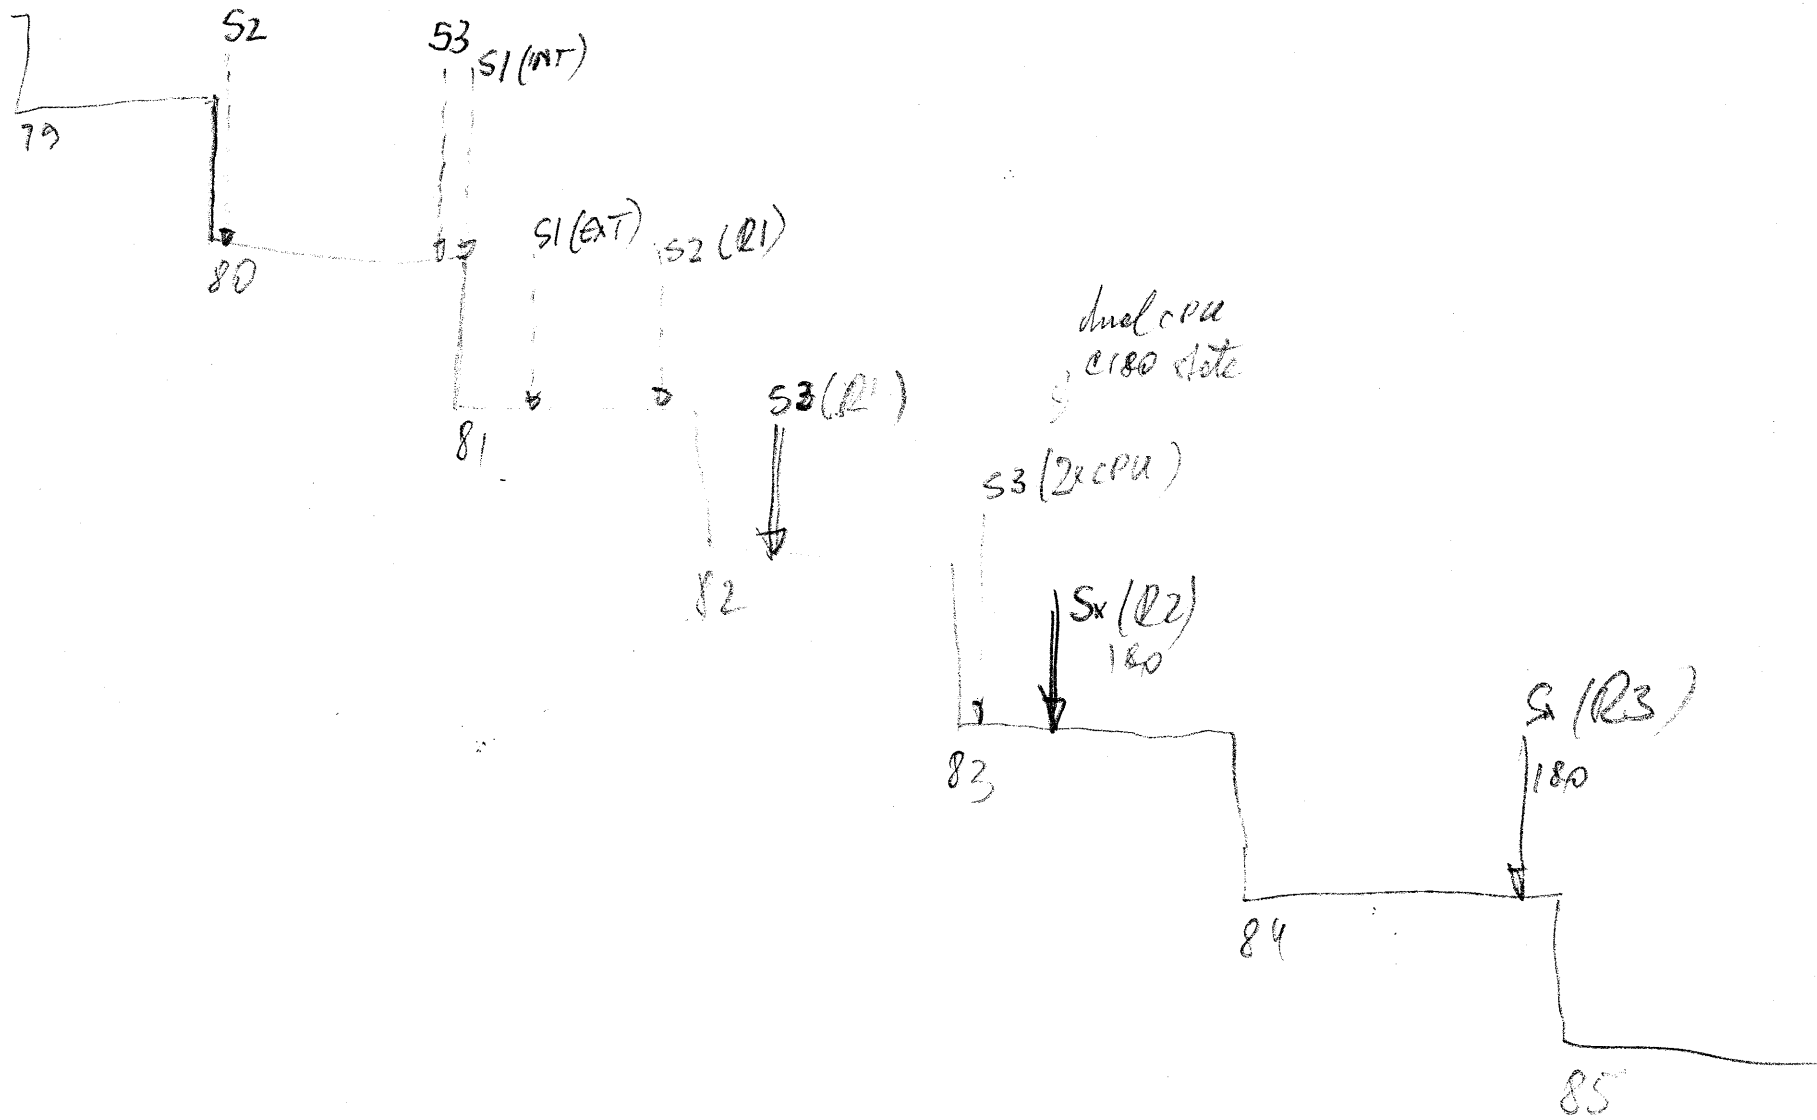 S2
S3
S1 (INT)
79
80
S1 (EXT)
S2 (R1)
81
S3 (R1)
82
dual CPU
C180
S3 (2xCPU)
Sx (R2)
180
83
(R3)
180
84
85